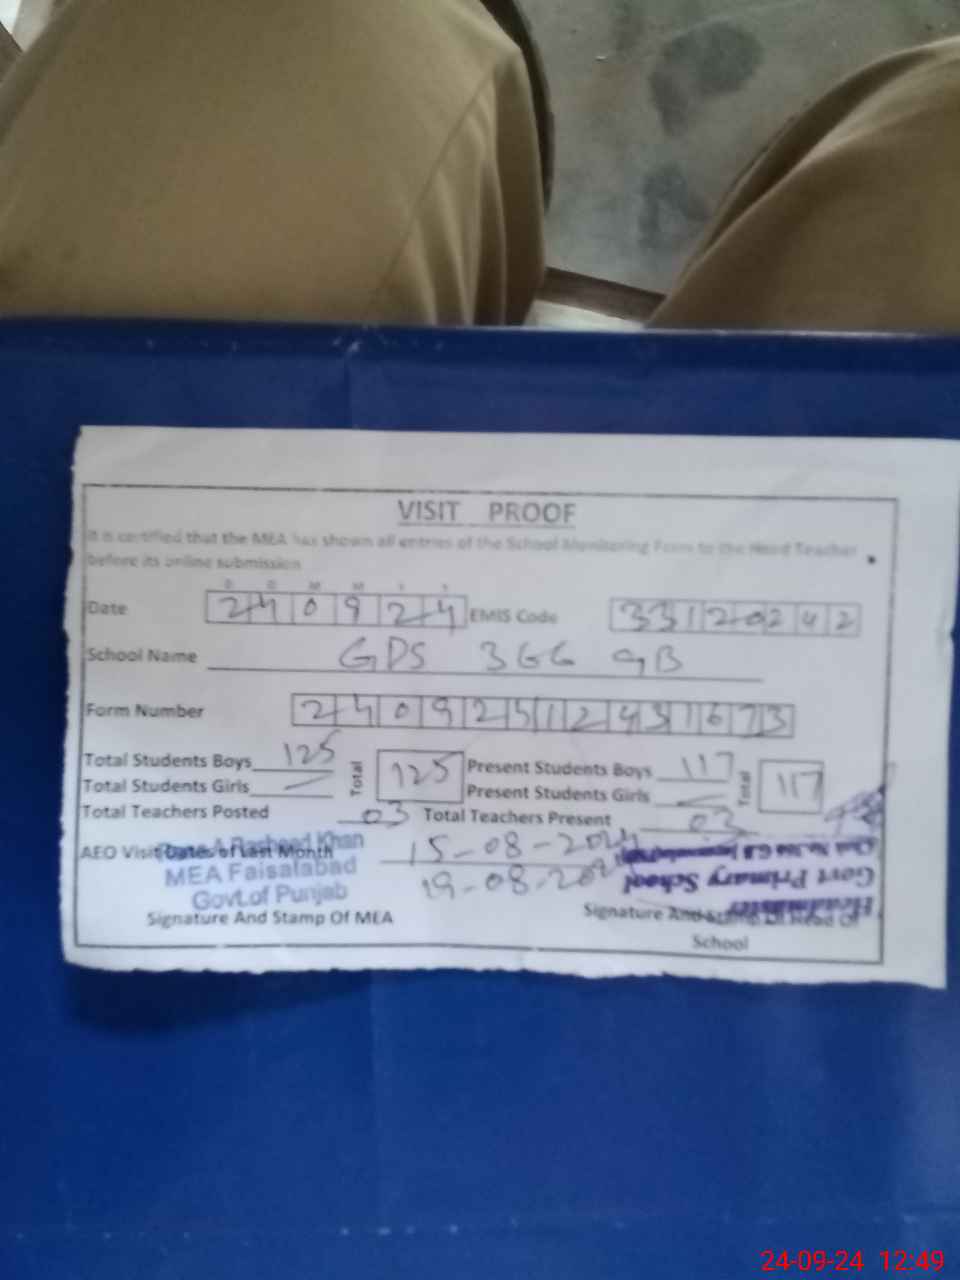 VISIT PROOF
It is certified that the MEA has shown all entries of the School Monitoring Form to the Head Teacher
before its online submission
D D M M Y Y
Date 240924 EMIS Code 33120242
School Name GPS 366 GB
Form Number
Total Students Boys 125 Total 125 Present Students Boys 117 Total 117
Total Students Girls — Present Students Girls —
Total Teachers Posted 03 Total Teachers Present 03
AEO Visit Dates of Last Month 15-08-2024
19-08-2024
Rasheed Khan
MEA Faisalabad
Govt.of Punjab
Signature And Stamp Of MEA
Headmaster
Govt Primary School
Signature And Stamp Of Head Of
School
24-09-24 12:49